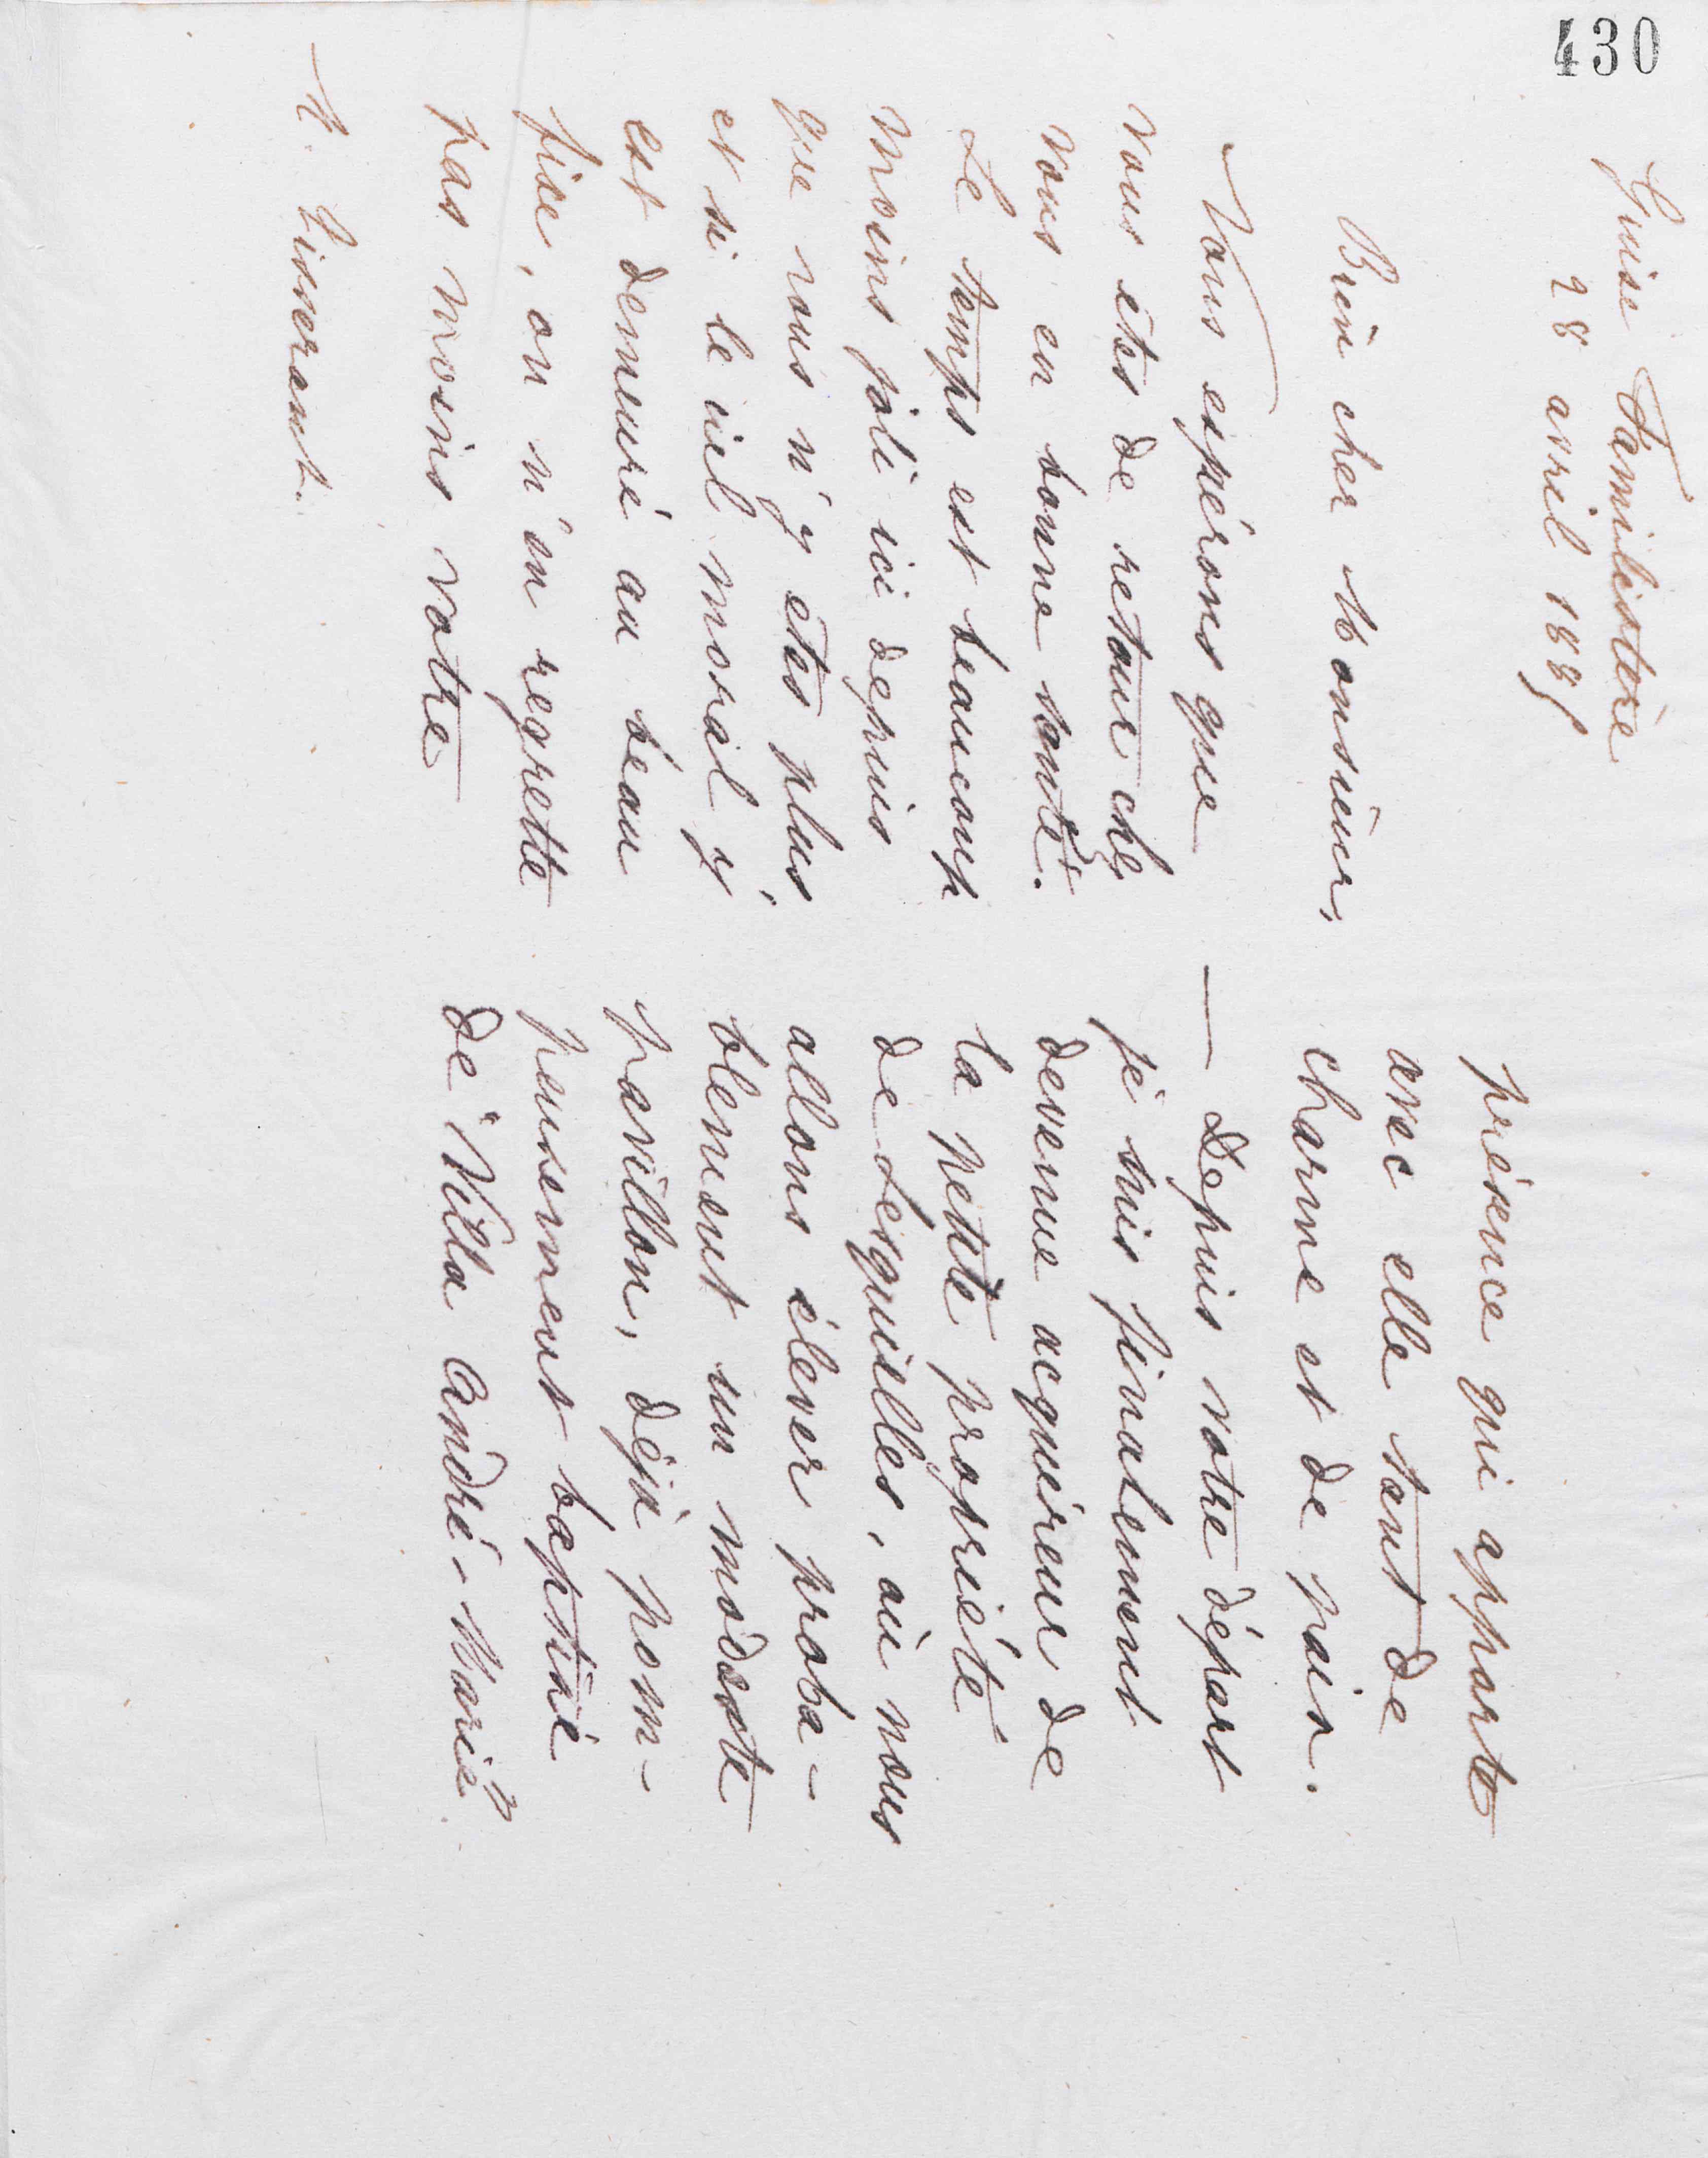 430
Guise Familistère
28 avril 1885
Bien cher Monsieur,
Nous espérons que
vous êtes de retour chez
vous en bonne santé.
Le temps est beaucoup
moins joli ici depuis
que vous n'y êtes plus
et si le ciel moral y
est demeuré au beau
fixe, on n'en regrette
pas moins votre
M. Tisserant.
présence qui apporte
avec elle tant de
charme et de paix.
— Depuis votre départ
je suis finalement
devenue acquéreur de
la petite propriété
de Lesquielles, où nous
allons élever proba-
blement un modeste
pavillon, déjà pom-
peusement baptisé
de "Villa André-Marie".